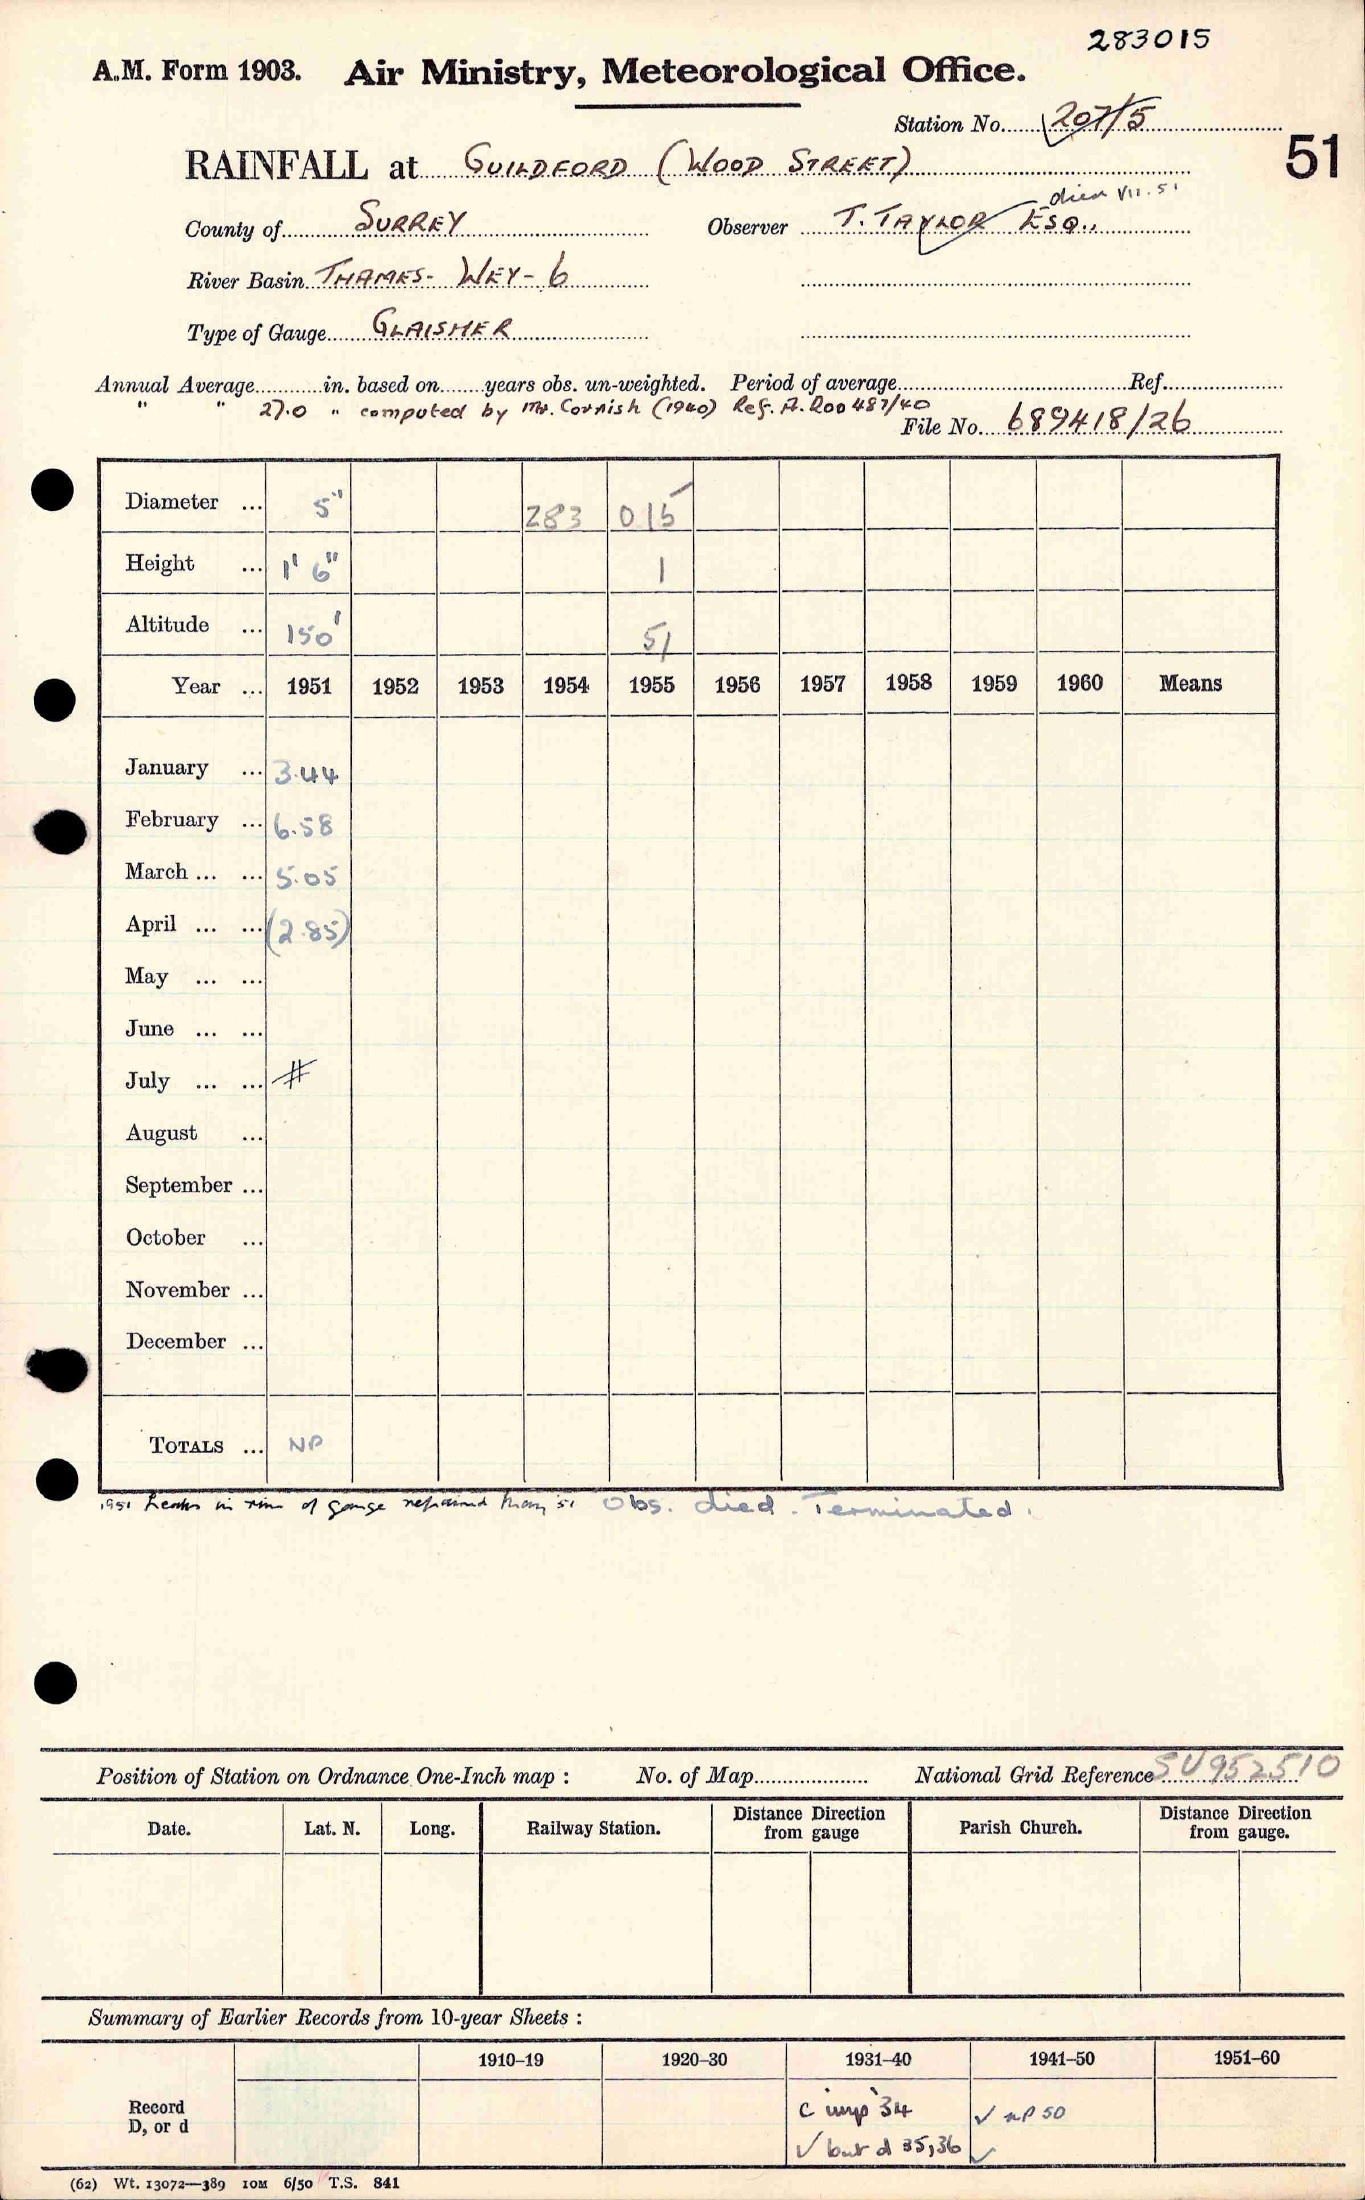 283015
A.M. Form 1903. Air Ministry, Meteorological Office.
Station No. 207/5
51
RAINFALL at GUILDFORD (WOOD STREET)
died VII.51
County of SURREY Observer T. TAYLOR ESQ.,
River Basin THAMES - WEY - 6
Type of Gauge GLAISHER
Annual Average in. based on years obs. un-weighted. Period of average Ref.
" " 27.0 " computed by Mr. Cornish (1940) Ref. A. Roo 487/40
File No. 689418/26
Diameter ... 5" 283 015
Height ... 1' 6" 1
Altitude ... 150' 51
Year ... 1951 1952 1953 1954 1955 1956 1957 1958 1959 1960 Means
January ... 3.44
February ... 6.58
March ... ... 5.05
April ... ... (2.85)
May ... ...
June ... ...
July ... ... #
August ...
September ...
October ...
November ...
December ...
TOTALS ... NP
1951 Leaks in rim of gauge repaired May '51 Obs. died. Terminated.
Position of Station on Ordnance One-Inch map : No. of Map National Grid Reference SU 952510
Date. Lat. N. Long. Railway Station. Distance Direction from gauge Parish Church. Distance Direction from gauge.
Summary of Earlier Records from 10-year Sheets :
1910-19 1920-30 1931-40 1941-50 1951-60
Record D, or d
c imp '34 ✓ NP 50
✓ but d 35,36 ✓
(62) Wt. 13072—389 10M 6/50 T.S. 841